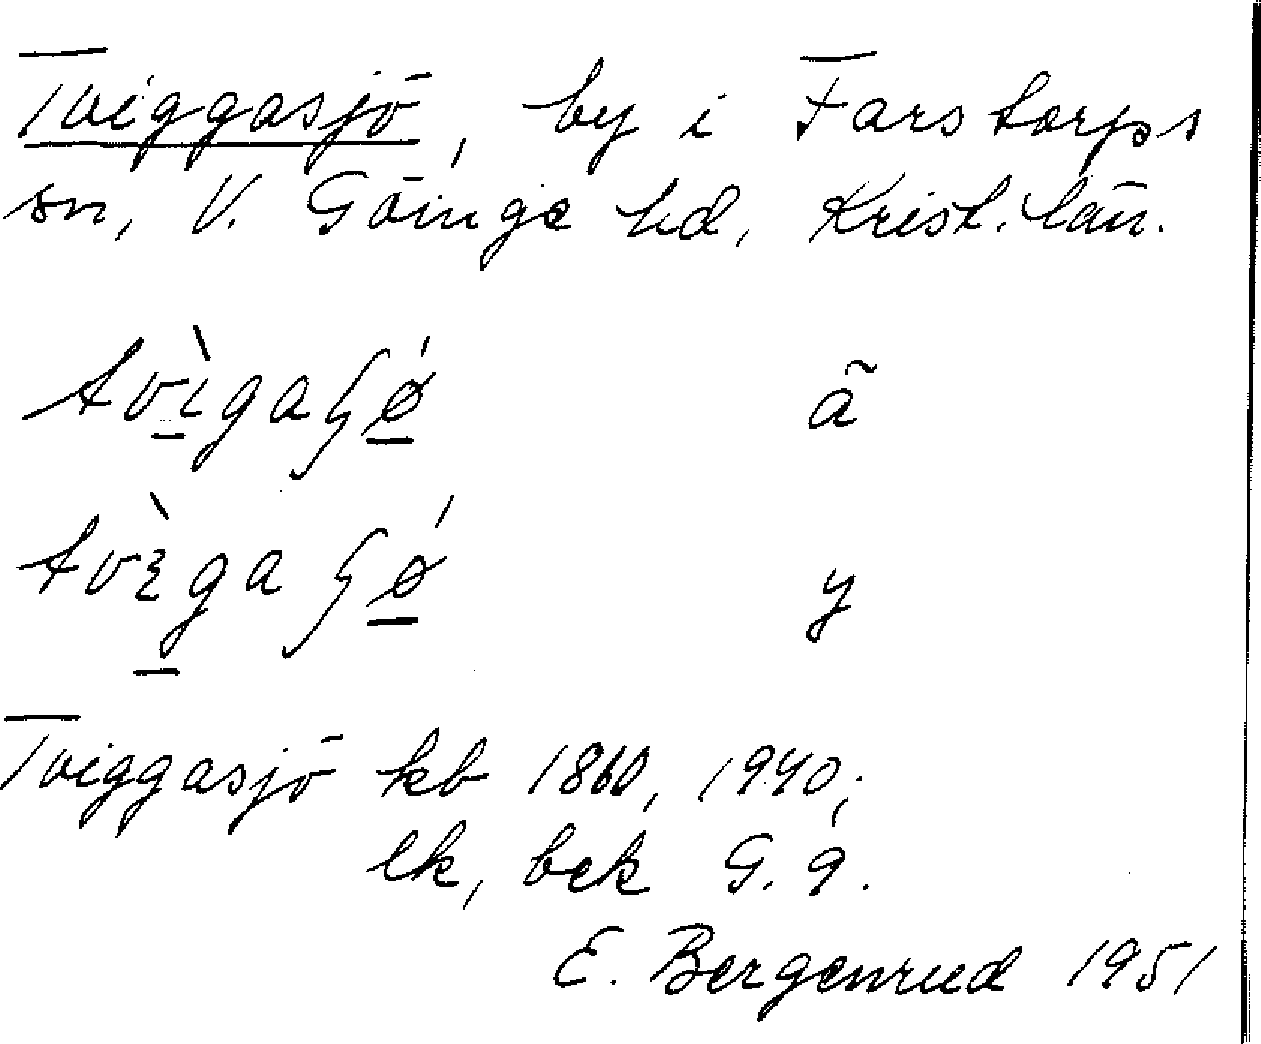 Tviggasjö, by i Farstorps
sn, V. Göinge hd, Krist. län.
tvìgaʃǿ ã
tvɛ̀gaʃǿ y
Tviggasjö kb 1860, 1940;
ek, bek G. 9.
E. Bergenrud 1951